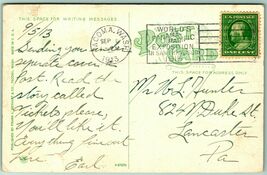 THIS SPACE FOR WRITING MESSAGES
POST CARD
TACOMA, WASH.
SEP
1913
WORLD'S
PANAMA-PACIFIC
EXPOSITION
IN SAN FRANCISCO
THIS SPACE FOR ADDRESS ONLY
9/5/13
Sending you under
separate cover
Post. Read the
story called
Tickets please,
You'll like it.
Anything from out
here
Earl
Mr W L Hunter
824 N Duke St
Lancaster
Pa